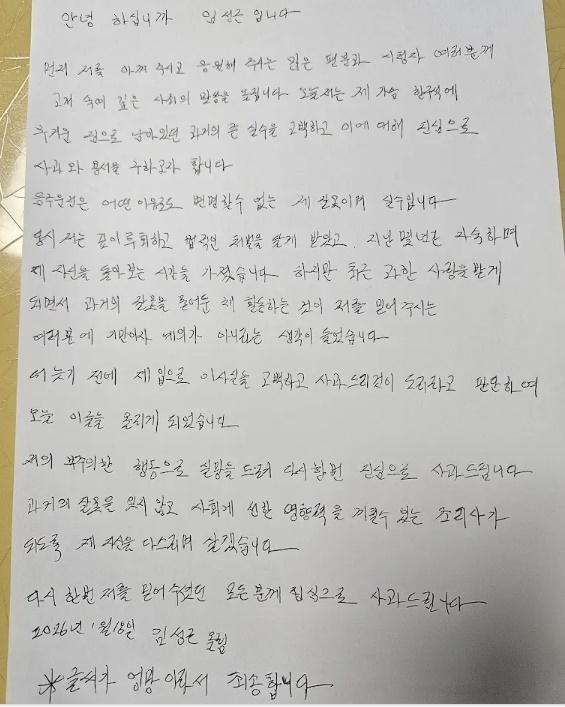 안녕 하십니까 임성근 입니다
먼저 저를 아껴 주시고 응원해 주시는 많은 팬분과 시청자 여러분께
고개 숙여 깊은 사죄의 말씀을 올립니다 오늘 저는 제 가슴 한구석에
무거운 짐으로 남아있던 과거의 큰 실수를 고백하고 이에 대해 진심으로
사과와 용서를 구하고자 합니다
음주운전은 어떤 이유로도 변명할수 없는 제 잘못이며 실수입니다
당시 저는 깊이 후회하고 법적인 처벌을 달게 받았고, 지난 몇년간 자숙하며
제 자신을 돌아보는 시간을 가졌습니다 하지만 최근 과한 사랑을 받게
되면서 과거의 잘못을 묻어둔 채 활동하는 것이 저를 믿어 주시는
여러분에 기만이자 예의가 아니라는 생각이 들었습니다
더 늦기 전에 제 입으로 이사실을 고백하고 사과 드리것이 도리라고 판단하여
오늘 이글을 올리게 되었습니다
저의 부주의한 행동으로 실망을 드려 다시한번 진심으로 사과드립니다
과거의 잘못을 잊지 않고 사회에 선한 영향력을 끼칠수 있는 조리사가
되도록 제 자신을 다스리며 살겠습니다
다시 한번 저를 믿어 주셨던 모든 분께 진심으로 사과드립니다
2026년 1월 18일 임성근 올림
※글씨가 엉망 이라서 죄송합니다